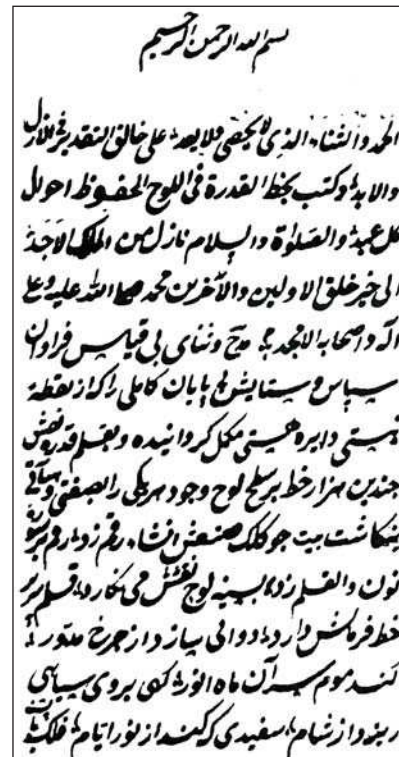 بسم الله الرحمن الرحيم
الحمد والثناء الذي لا يحصى ولا يعد على خالق التقدير في الازل
والابد وكتب بخط القدرة في اللوح المحفوظ احوال
كل عبد والصلوة والسلام نازل من الملك الاجد
الى خير خلق الاولين والآخرين محمد صلى الله عليه وعلى
آله واصحابه الامجد مدح وثنای بی قیاس فراوان
سپاس وستایش بی پایان کاملی راکه از نقطهٔ
نیستی دایره هستی مکمل کردانیده وبقلم قدرتش
چندین هزار خط بر سطح لوح وجود هریکی را بصفتی
بنکاشت بیت چو کلک صنعش انشاء رقم زد رقم بر سورهٔ
نون والقلم زد بسینه لوح نقشش می نکارد قلم بر
خط فرمانش دارد دواتی سازد از چرخ مدور
کند موم سیه آن ماه انور کهی بروی سیاهی
ریزد از شام سفیدی که کند از نور ایام فلک